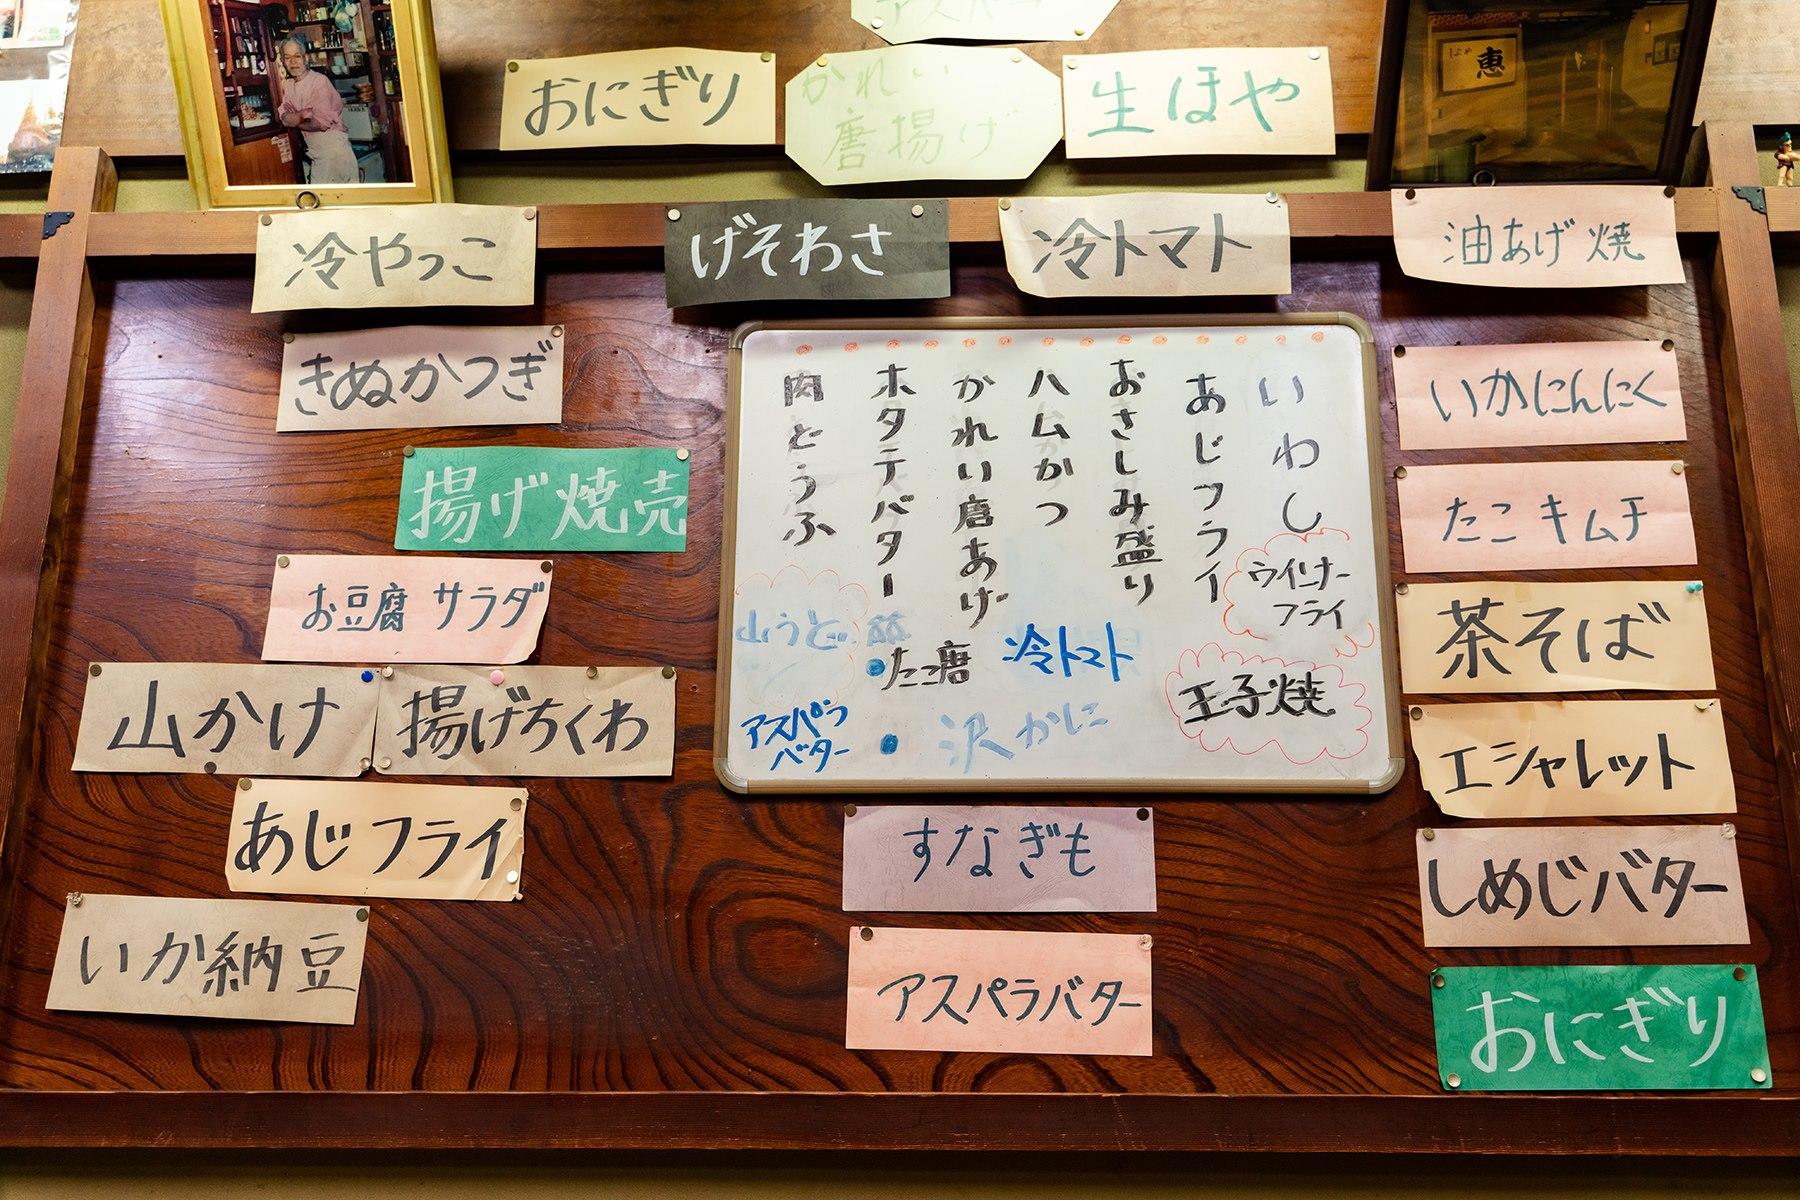 アスパラ
おにぎり
かれい
唐揚げ
生ほや
恵
冷やっこ
げそわさ
冷トマト
油あげ焼
きぬかつぎ
揚げ焼売
お豆腐サラダ
山かけ
揚げちくわ
あじフライ
いか納豆
いわし
あじフライ
おさしみ盛り
ハムかつ
かれい唐あげ
ホタテバター
肉とうふ
ウインナー
フライ
王子焼
冷トマト
たこ唐
沢かに
山うど
アスパラ
バター
すなぎも
アスパラバター
いかにんにく
たこキムチ
茶そば
エシャレット
しめじバター
おにぎり